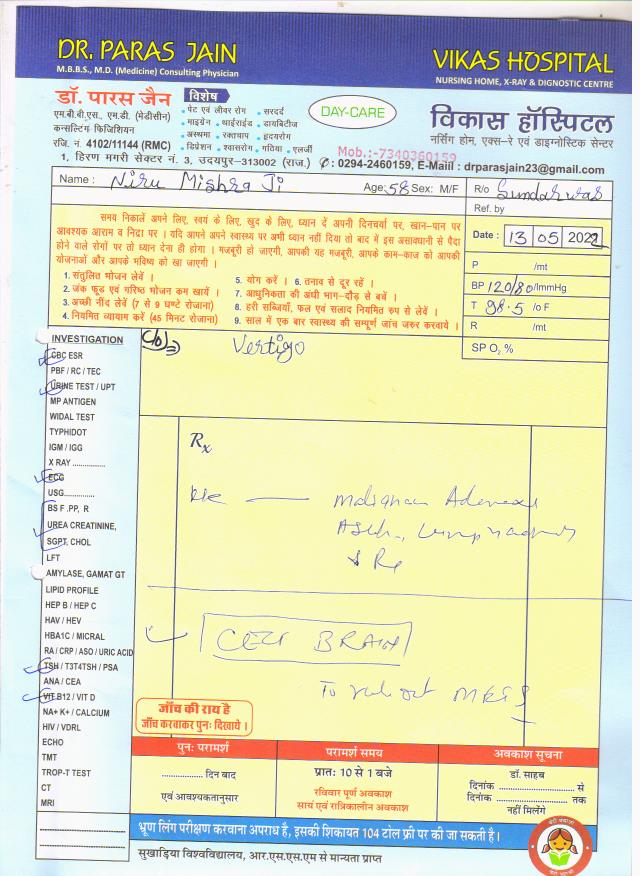 DR. PARAS JAIN
M.B.B.S., M.D. (Medicine) Consulting Physician
VIKAS HOSPITAL
NURSING HOME, X-RAY & DIGNOSTIC CENTRE
डॉ. पारस जैन
एम.बी.बी.एस., एम.डी. (मेडीसीन)
कन्सल्टिंग फिजिशियन
रजि. नं. 4102/11144 (RMC)
विशेष
• पेट एवं लीवर रोग • सरदर्द
• माइग्रेन • थाईराईड • डायबिटीज
• अस्थमा • रक्तचाप • हृदयरोग
• डिप्रेशन • श्वासरोग • गठिया • एलर्जी
DAY-CARE
विकास हॉस्पिटल
नर्सिंग होम, एक्स-रे एवं डाइग्नोस्टिक सेन्टर
Mob.:-7340360159
1, हिरण मगरी सेक्टर नं. 3, उदयपुर-313002 (राज.) ✆: 0294-2460159, E-Maiil : drparasjain23@gmail.com
Name : Niru Mishra Ji Age: 58 Sex: M/F R/o Sundarwas
Ref. by
समय निकालें अपने लिए, स्वयं के लिए, खुद के लिए, ध्यान दें अपनी दिनचर्या पर, खान-पान पर
आवश्यक आराम व निद्रा पर । यदि आपने अपने स्वास्थ्य पर अभी ध्यान नहीं दिया तो बाद में इस असावधानी से पैदा
होने वाले रोगों पर तो ध्यान देना ही होगा । मजबूरी हो जाएगी, आपकी यह मजबूरी, आपके काम-काज को आपकी
योजनाओं और आपके भविष्य को खा जाएगी ।
1. संतुलित भोजन लेवें ।
2. जंक फूड एवं गरिष्ठ भोजन कम खायें ।
3. अच्छी नींद लेवें (7 से 9 घण्टे रोजाना)
4. नियमित व्यायाम करें (45 मिनट रोजाना)
5. योग करें । 6. तनाव से दूर रहें ।
7. आधुनिकता की अंधी भाग-दौड़ से बचें ।
8. हरी सब्जियाँ, फल एवं सलाद नियमित रुप से लेवें ।
9. साल में एक बार स्वास्थ्य की सम्पूर्ण जांच जरुर करवाये ।
Date : 13 05 2022
P /mt
BP 120/80/lmmHg
T 98.5/o F
R /mt
SP O2 %
C/o
Vertigo
INVESTIGATION
CBC ESR
PBF / RC / TEC
URINE TEST / UPT
MP ANTIGEN
WIDAL TEST
TYPHIDOT
IGM / IGG
X RAY ..............
ECG
USG..............
BS F .PP, R
UREA CREATININE,
SGPT, CHOL
LFT
AMYLASE, GAMAT GT
LIPID PROFILE
HEP B / HEP C
HAV / HEV
HBA1C / MICRAL
RA / CRP / ASO / URIC ACID
TSH / T3T4TSH / PSA
ANA / CEA
VIT B12 / VIT D
NA+ K+ / CALCIUM
HIV / VDRL
ECHO
TMT
TROP-T TEST
CT
MRI
Rx
BRAIN
To rule out
जाँच की राय है
जाँच करवाकर पुनः दिखाये ।
पुनः परामर्श
.................... दिन बाद
एवं आवश्यकतानुसार
परामर्श समय
प्रातः 10 से 1 बजे
रविवार पूर्ण अवकाश
सायं एवं रात्रिकालीन अवकाश
अवकाश सूचना
डॉ. साहब
दिनांक .................... से
दिनांक .................... तक
नहीं मिलेंगे
भ्रूण लिंग परीक्षण करवाना अपराध है, इसकी शिकायत 104 टोल फ्री पर की जा सकती है।
सुखाड़िया विश्वविद्यालय, आर.एस.एस.एम से मान्यता प्राप्त